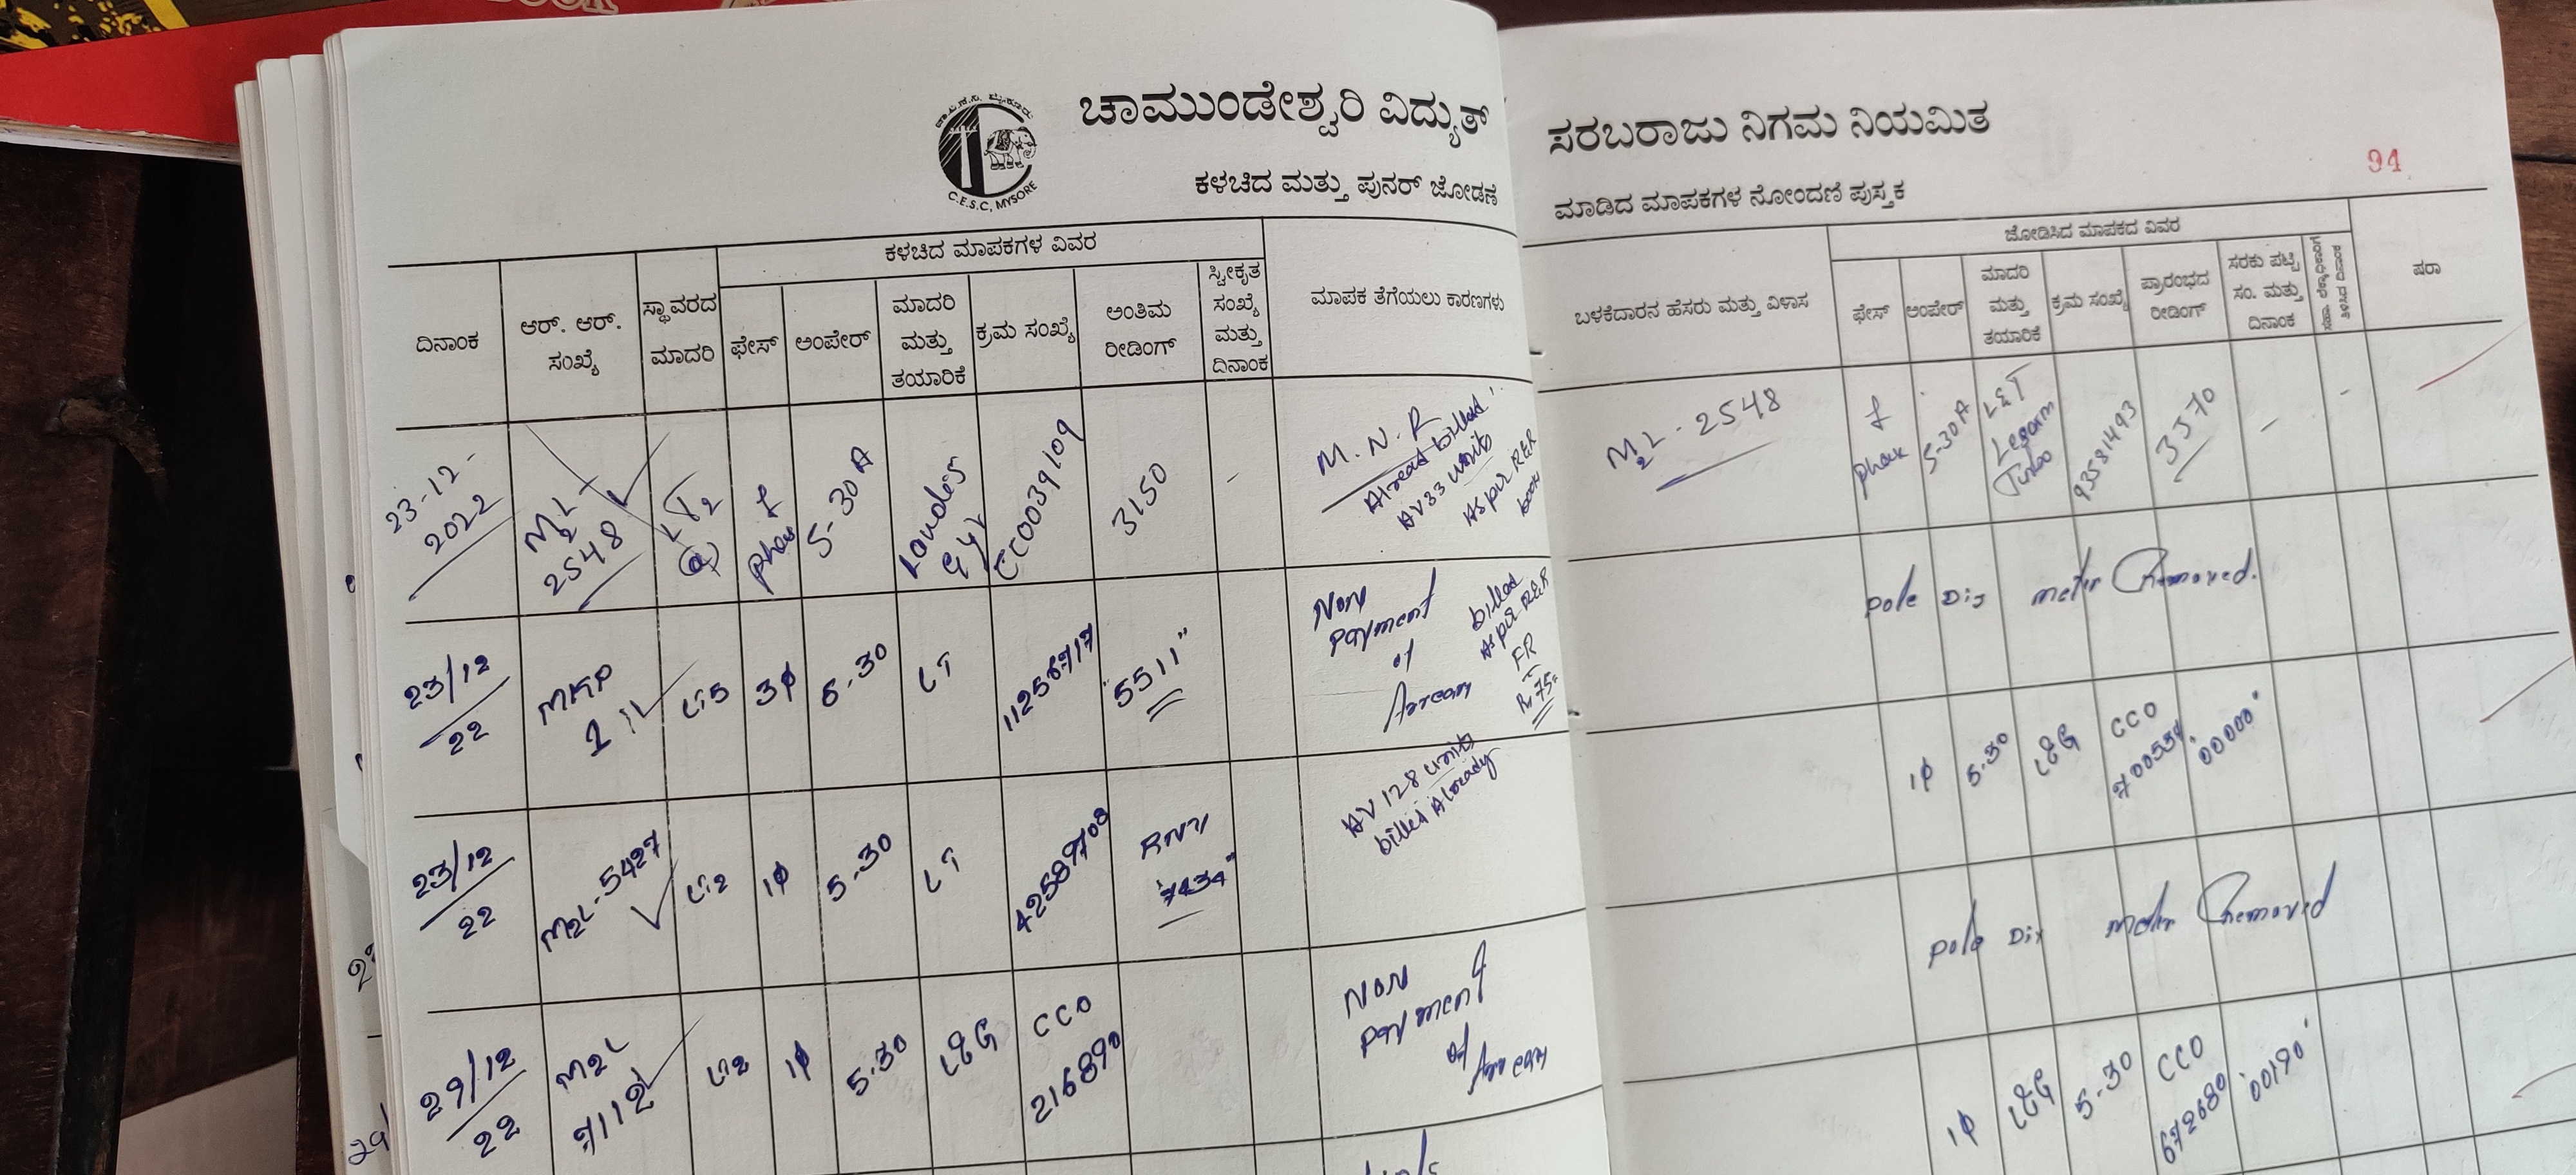 ಚಾಮುಂಡೇಶ್ವರಿ ವಿದ್ಯುತ್ ಸರಬರಾಜು ನಿಗಮ ನಿಯಮಿತ
C.E.S.C, MYSORE
94
ಕಳಚಿದ ಮತ್ತು ಪುನರ್ ಜೋಡಣೆ ಮಾಡಿದ ಮಾಪಕಗಳ ನೋಂದಣಿ ಪುಸ್ತಕ
ದಿನಾಂಕ
ಆರ್. ಆರ್.
ಸಂಖ್ಯೆ
ಸ್ಥಾವರದ
ಮಾದರಿ
ಕಳಚಿದ ಮಾಪಕಗಳ ವಿವರ
ಫೇಸ್
ಅಂಪೇರ್
ಮಾದರಿ
ಮತ್ತು
ತಯಾರಿಕೆ
ಕ್ರಮ ಸಂಖ್ಯೆ
ಅಂತಿಮ
ರೀಡಿಂಗ್
ಸ್ವೀಕೃತ
ಸಂಖ್ಯೆ
ಮತ್ತು
ದಿನಾಂಕ
ಮಾಪಕ ತೆಗೆಯಲು ಕಾರಣಗಳು
ಬಳಕೆದಾರನ ಹೆಸರು ಮತ್ತು ವಿಳಾಸ
ಜೋಡಿಸಿದ ಮಾಪಕದ ವಿವರ
ಫೇಸ್
ಅಂಪೇರ್
ಮಾದರಿ
ಮತ್ತು
ತಯಾರಿಕೆ
ಕ್ರಮ ಸಂಖ್ಯೆ
ಪ್ರಾರಂಭದ
ರೀಡಿಂಗ್
ಸರಕು ಪಟ್ಟಿ
ಸಂ. ಮತ್ತು
ದಿನಾಂಕ
ಷರಾ
23-12-
2022
M2L
2548
LT2
(a)
phase
5-30A
CC0039109
3150
M.N.R
Alread billed
AV33 units
As per RER
book
M2L-2548
5-30A
L&T
93581493
3570
23/12
22
MKP
LT5
3φ
5-30
LT
11256717
5511"
Non
payment
of
Arrears
billed
As per RER
FR
pole Dis meter Removed.
23/12
22
M2L-5427
LT2
1φ
5-30
LT
42589708
7434"
AV 128 units
billed Already
1φ
5-30
L&G
CCO
00000"
pole Dis meter Removed
29/12
22
M2L
7112
LT2
1φ
5-30
L&G
CCO
216890
Non
payment
of
Arrears
1φ
L&G
5-30
CCO
672680
00190"